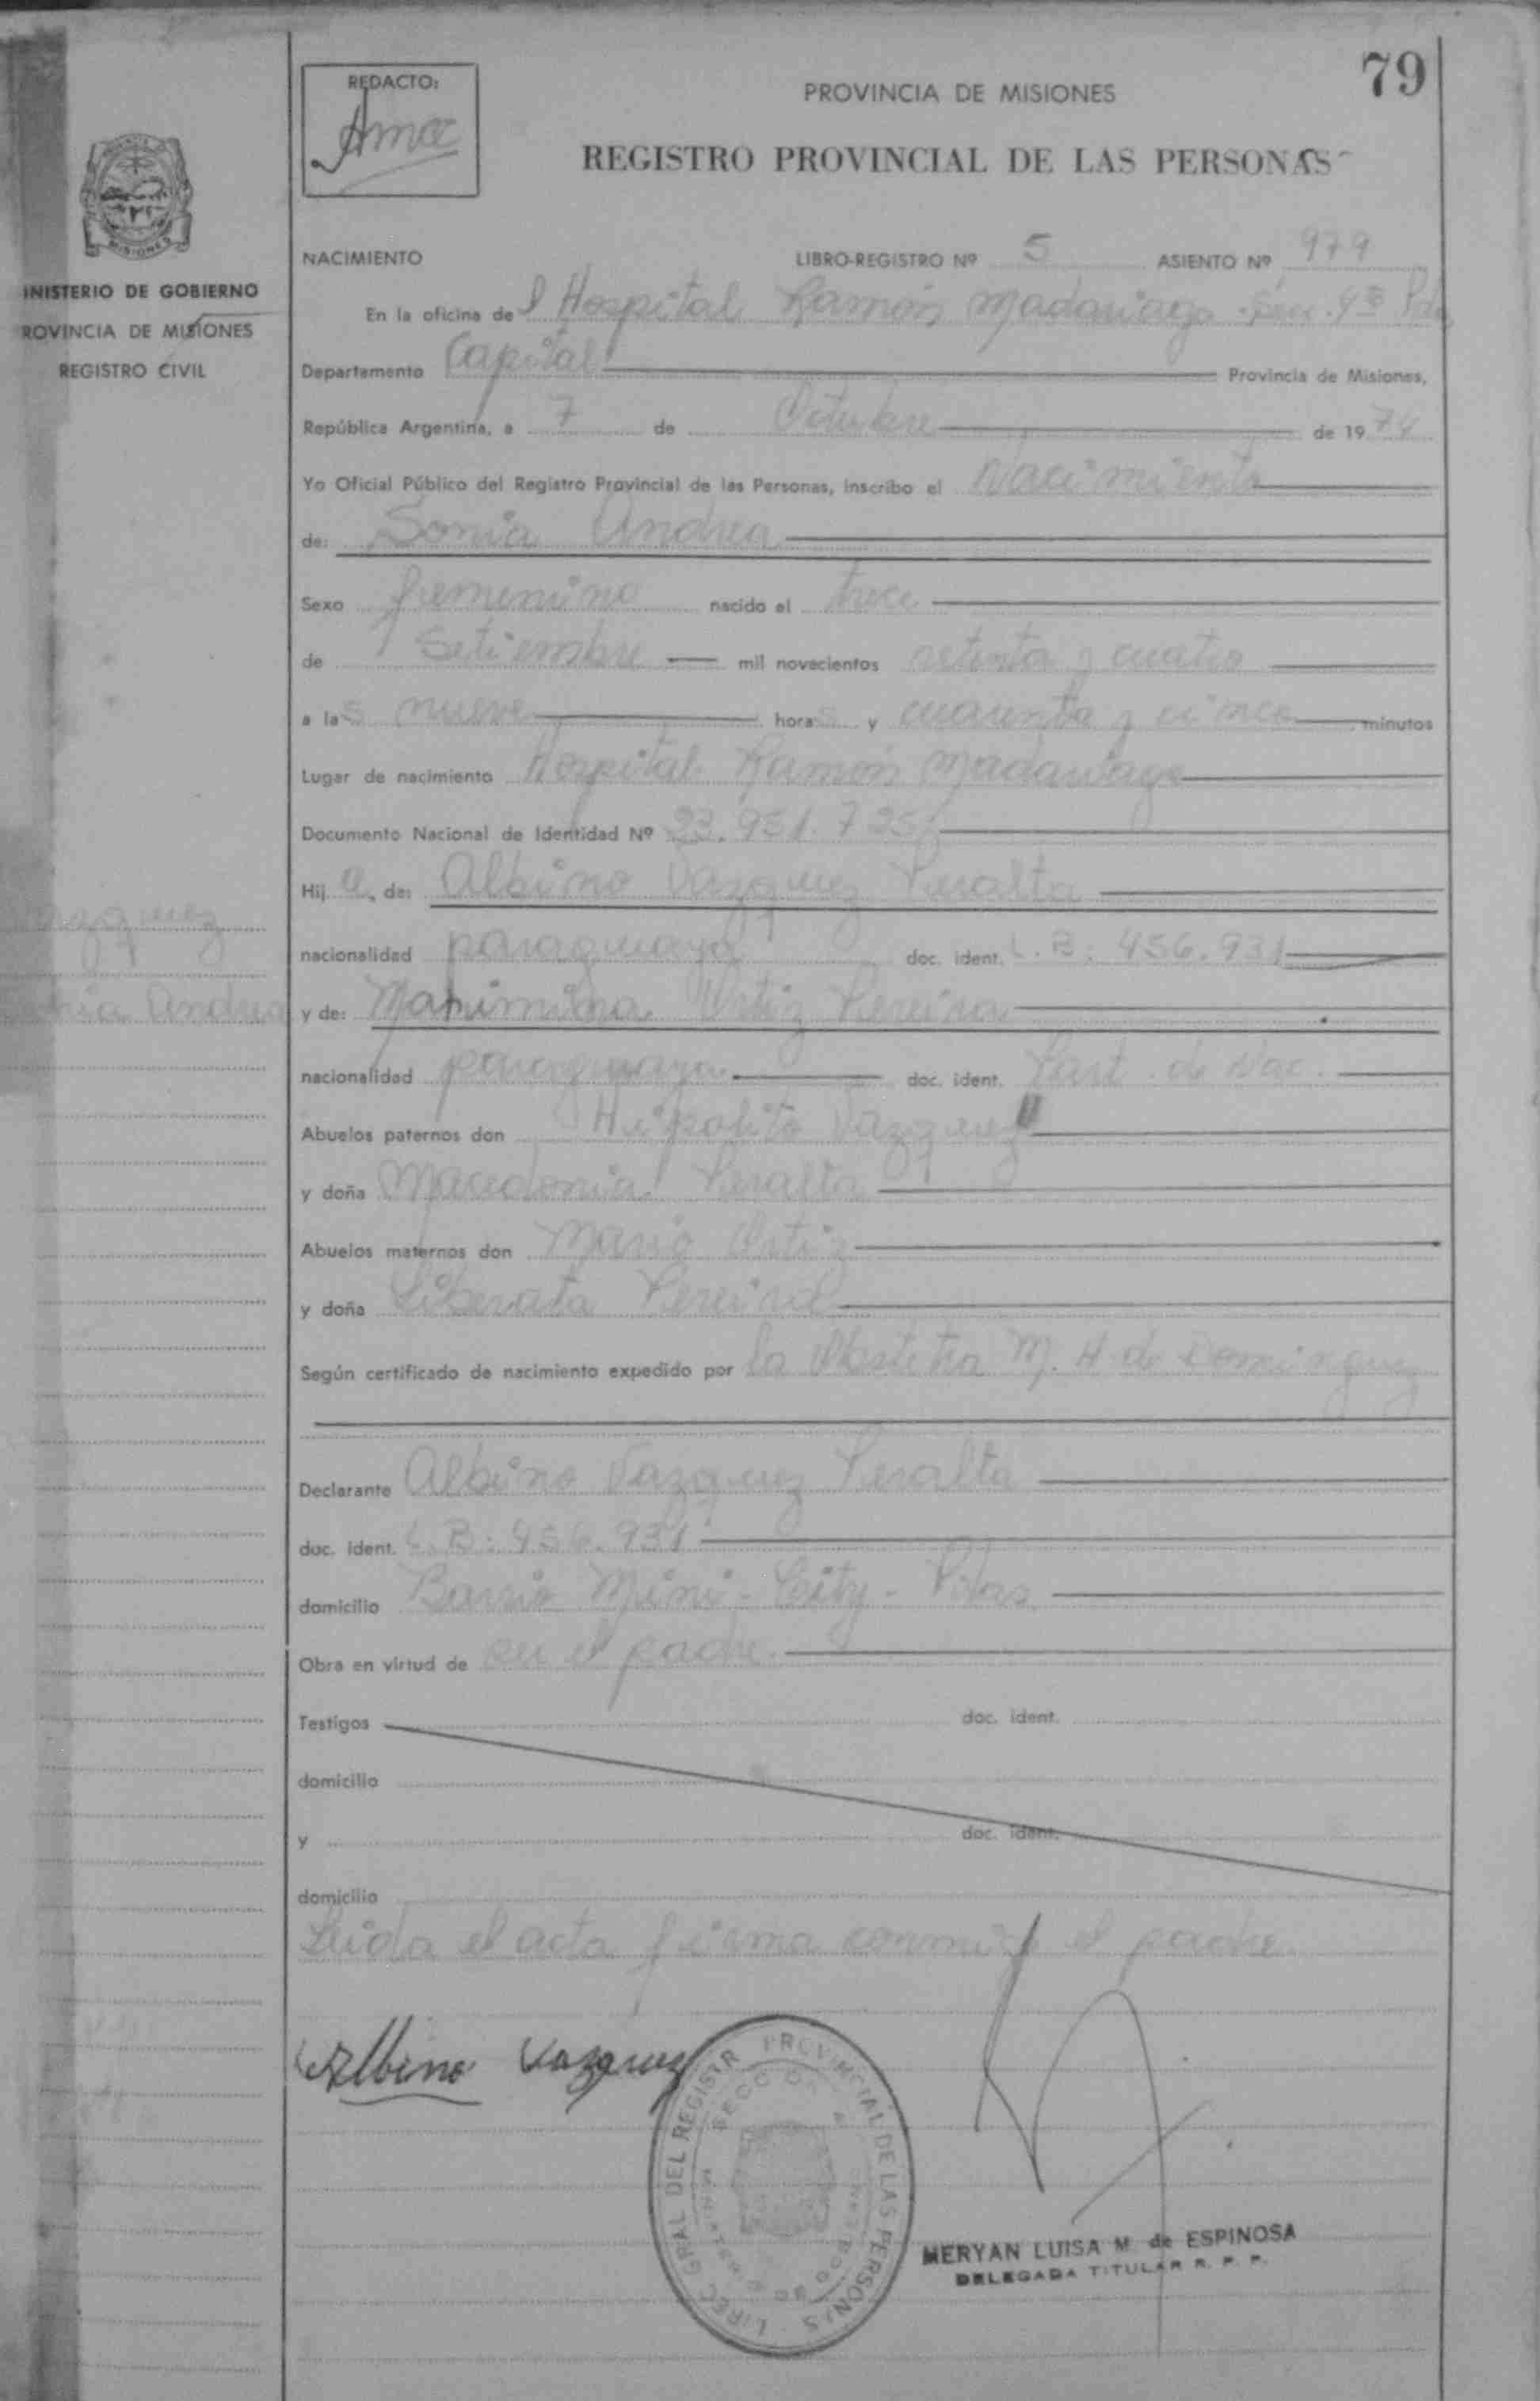 79
REDACTO:
PROVINCIA DE MISIONES
REGISTRO PROVINCIAL DE LAS PERSONAS
MISIONES
INISTERIO DE GOBIERNO
ROVINCIA DE MISIONES
REGISTRO CIVIL
NACIMIENTO LIBRO-REGISTRO Nº 5 ASIENTO Nº 979
En la oficina del Hospital Ramón Madariaga
Departamento Capital Provincia de Misiones,
República Argentina, a 7 de Octubre de 1974
Yo Oficial Público del Registro Provincial de las Personas, inscribo el Nacimiento
de: Sonia Andrea
Sexo femenino nacido el trece
de Setiembre mil novecientos setenta y cuatro
a las nueve horas y cuarenta y cinco minutos
Lugar de nacimiento Hospital Ramón Madariaga
Documento Nacional de Identidad Nº 23.951.725
Hija de: Albino Vazquez Peralta
azquez
nacionalidad paraguaya doc. ident. L.B: 456.931
nia Andrea
y de: Maximina Ortiz Pereira
nacionalidad paraguaya doc. ident. Part. de Nac.
Abuelos paternos don Hipolito Vazquez
y doña Macedonia Peralta
Abuelos maternos don Mario Ortiz
y doña Liberata Pereira
Según certificado de nacimiento expedido por la Obstetra M. H de Dominguez
Declarante Albino Vazquez Peralta
doc. ident. L.B: 456.931
domicilio Barrio Mini-City- Pdas
Obra en virtud de ser el padre
Testigos doc. ident.
domicilio
y doc. ident.
domicilio
Leida el acta firma conmigo el padre
Albino Vazquez
DIREC. GRAL DEL REGISTR PROVINCIAL DE LAS PERSONAS
MERYAN LUISA M. de ESPINOSA
DELEGADA TITULAR R. P. P.